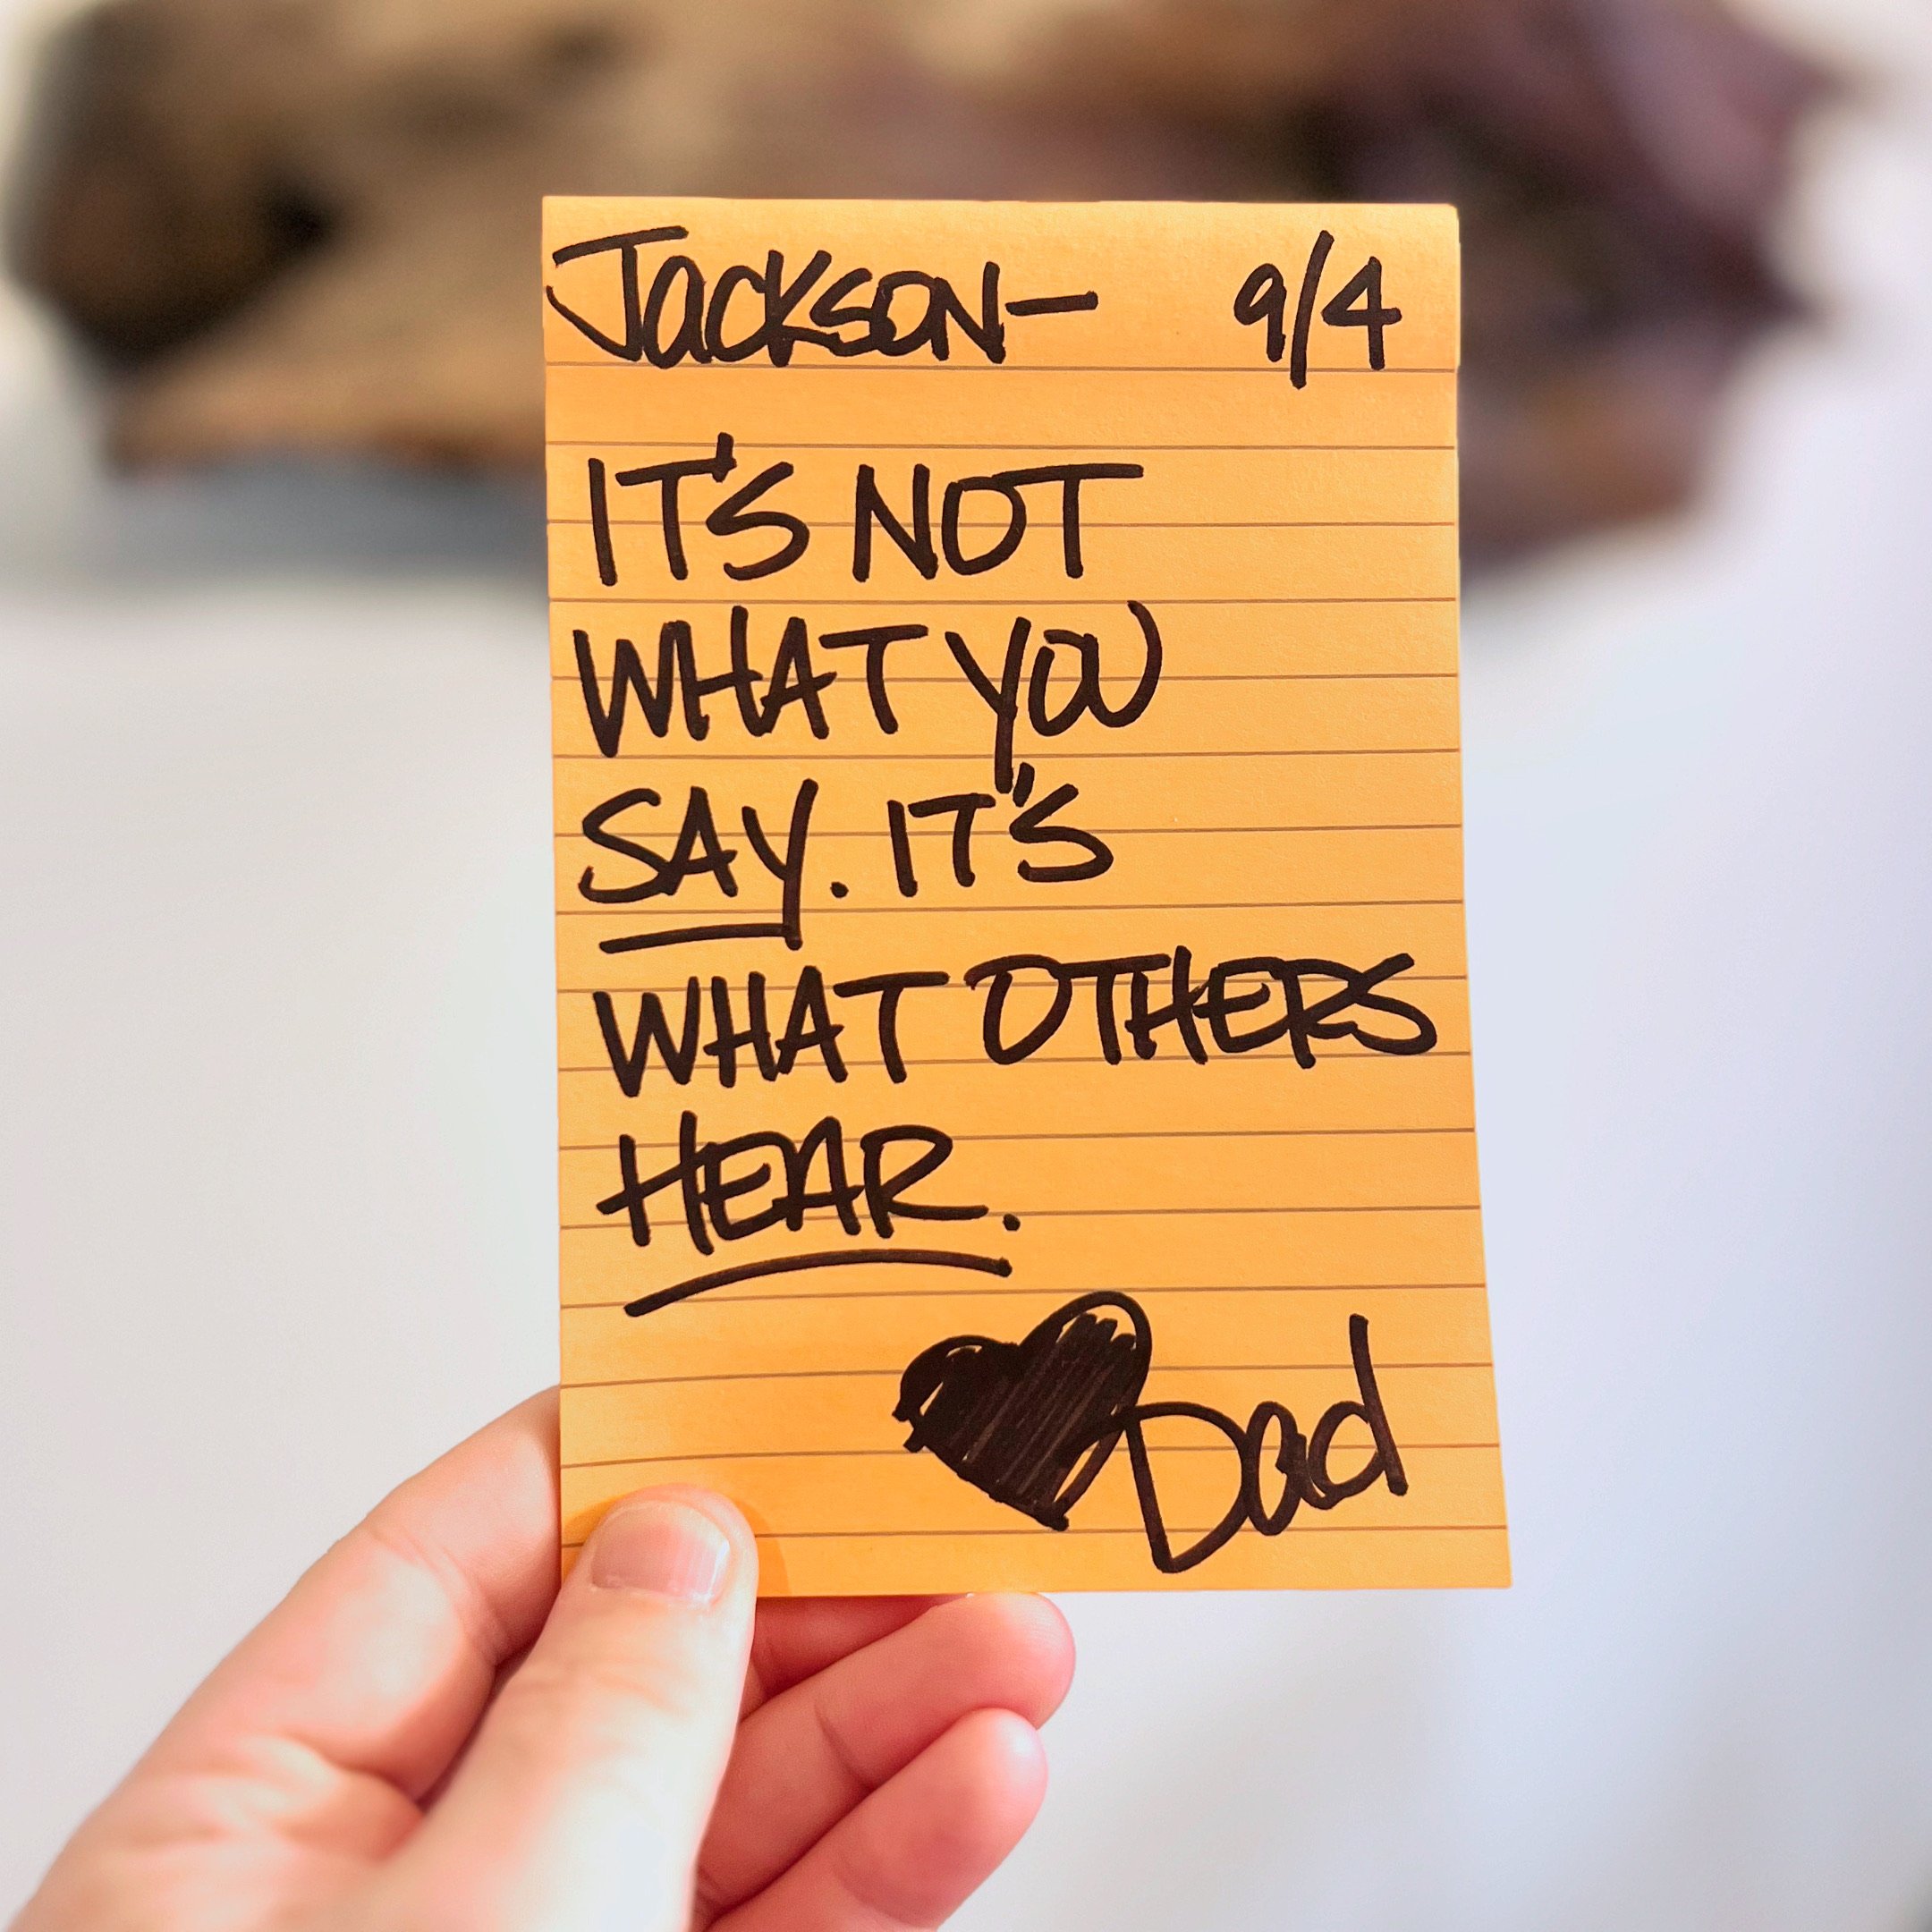 Jackson- 9/4
IT'S NOT
WHAT YOU
SAY. IT'S
WHAT OTHERS
HEAR.
Dad